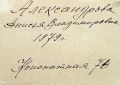 Александрова
Анисья Владимировна
1879 г.
Конопатная 7а